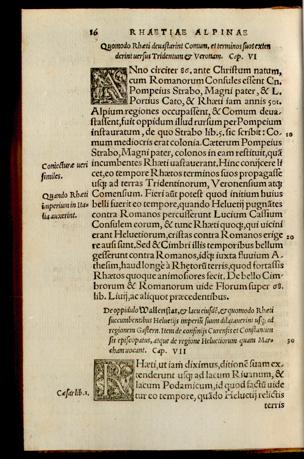 16 RHAETIAE ALPINAE
Quomodo Rhæti deuastarint Comum, et terminos suos exten
derint uersus Tridentum & Veronam. Cap. VI
ANno circiter 86. ante Christum natum,
cum Romanorum Consules essent Cn.
Pompeius Strabo, Magni pater, & L.
Portius Cato, & Rhæti iam annis 501.
Alpium regiones occupassent, & Comum deua-
stassent, fuit oppidum illud rursum per Pompeium
instauratum, de quo Strabo lib. 5. sic scribit: Co- 10
mum mediocris erat colonia. Cæterum Pompeius
Strabo, Magni pater, colonos in eam restituit, quã
incumbentes Rhæti uastauerant. Hinc conijcere li
Coniecturæ ueri
similes.
cet, eo tempore Rhætos terminos suos propagasse
usque ad terras Tridentinorum, Veronensium atque
Comensium. Fieri aũt potest quod initium huius
Quando Rhæti
imperium in Ita
lia auxerint.
belli fuerit eo tempore, quando Heluetij pugnãtes
contra Romanos percusserunt Lucium Cassium
Consulem eorum, & tunc Rhæti quoque, qui uicini
erant Heluetiorum, cristas contra Romanos erige 20
re ausi sunt. Sed & Cimbri illis temporibus bellum
gesserunt contra Romanos, idque iuxta fluuium A-
thesim, haud longè à Rhetorũ terris, quod fortassis
Rhætos quoque animosiores fecit. De bello Cim-
brorum & Romanorum uide Florum super 68.
lib. Liuij, ac aliquot præcedentibus.
De oppidulo Wallenstat, & lacu eiusdẽ, & quomodo Rhæti
succumbentibus Heluetijs imperiũ suum dilatauerint usque ad
regionem Gasteren. Item de confinijs Curensis et Constantien
sis episcopatus, atque de regione Heluetiorum quam Mar- 30
cham uocant. Cap. VII
RHæti, ut iam diximus, ditionẽ suam ex-
tenderunt usque ad lacum Riuanum, &
lacum Podamicum, id quod factũ uide
Cæsar lib. 1.
tur eo tempore, quãdo Heluetij relictis
terris